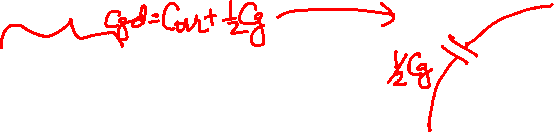 Cgd = Cov + ½Cg
½Cg